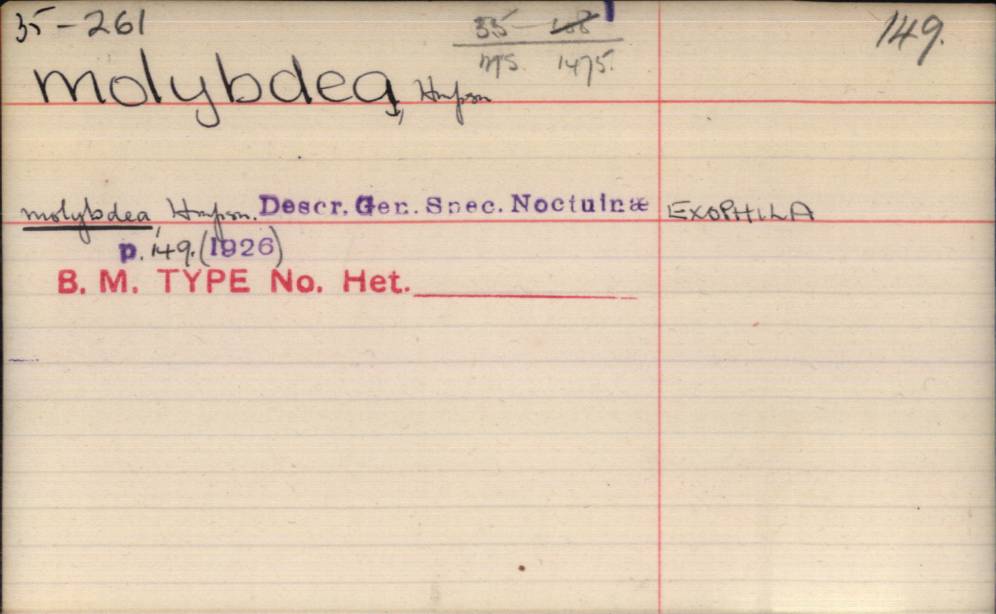 35-261
35
149.
ms. 1475.
molybdea, Hmpsn
molybdea, Hmpsn. Descr. Gen. Spec. Noctuinæ EXOPHILA
p. 149. (1926)
B. M. TYPE No. Het.